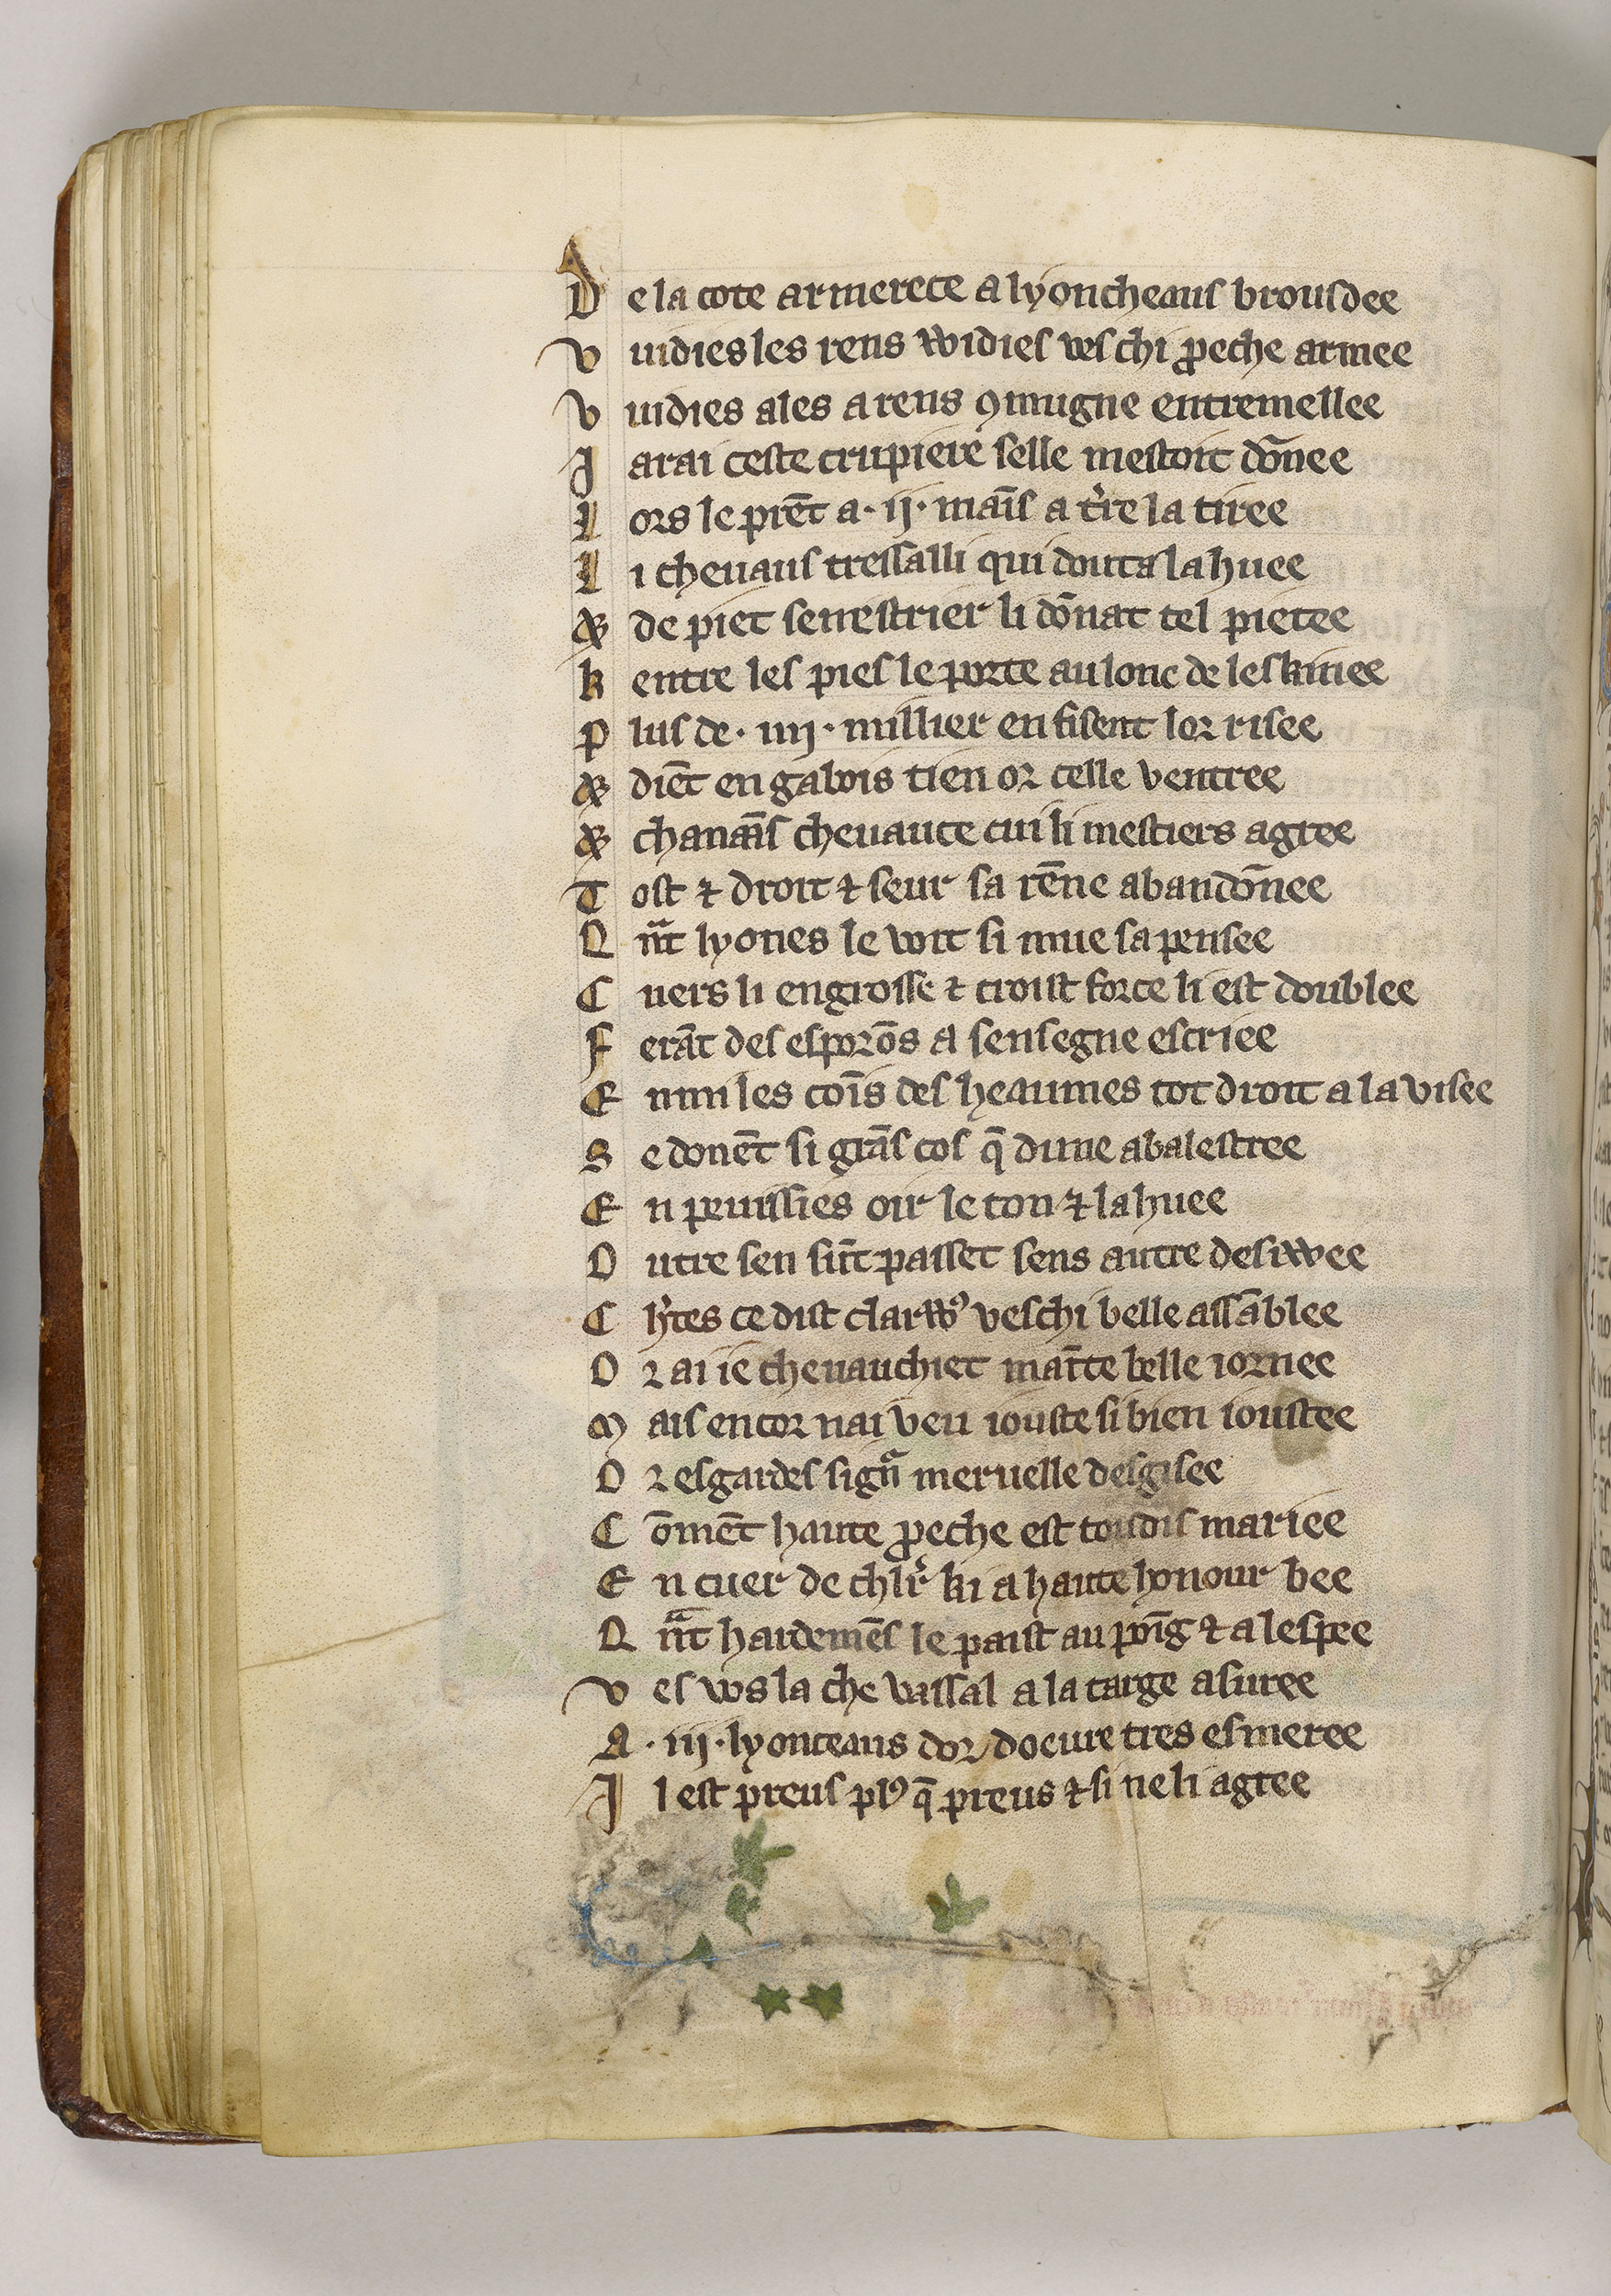 De la cote armerece a lyoncheaus brousdee
Vuidies les rens widies ves chi ꝓeche armee
Vuidies ales arens ꝯmugne entremellee
Jarai ceste crupiere selle mestoit dōnee
Lors le prēt a · ij · maīs a t̓re la tiree
Li cheuaus tressalli qui douta la huee
⁊ de piet senestrier li dōnat tel pietee
Kentre les pies le porte au lonc de leskinee
Plus de · iiij · millier en fisent lor risee
⁊ diēt en gabois tien or celle ventree
⁊ chanāns cheuauce cui li mestiers agree
Tost ⁊ droit ⁊ seur sa rēne abandōnee
Qnᷓt lyones le voit si mue sa pensee
Cuers li engrosse ⁊ croist force li est doublee
Ferāt des esporōs a sensegne escriee
Enmi les coīs des heaumes tot droit a la visee
Se donēt si grās cos q̄ dune abalestree
En peuissies oir le ton ⁊ la huee
Outre sen sūt passet sens autre desiwee
Ch̓tes ce dist clarwꝰ veschi belle assāblee
Or ai ie cheuauchiet mārte belle iornee
Mais encor nai veu iouste si bien ioustee
Or esgardes signᷓ meruelle desgisee
Cōmēt haute ꝓeche est toudis mariee
En cuer de chlr̓ ki a haute honour bee
Qnᷓt hardemēs le paist au poīg ⁊ a lespee
Ves vos la che vassal a la targe asuree
A · iij · lyonceaus dor / docure tres esmeree
Jl est preus plꝰ q̄ preus ⁊ si ne li agree